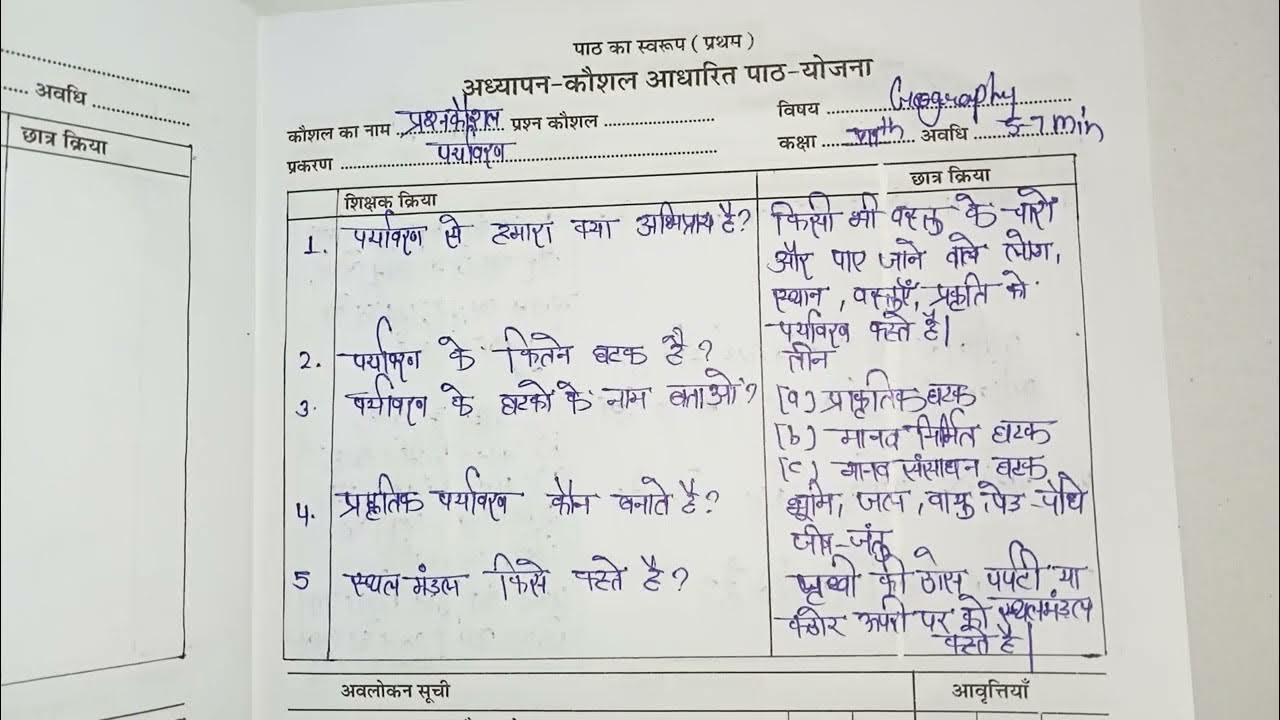 अवधि
छात्र क्रिया
पाठ का स्वरूप ( प्रथम )
अध्यापन-कौशल आधारित पाठ-योजना
कौशल का नाम प्रश्नकौशल प्रश्न कौशल
विषय Geography
प्रकरण पर्यावरण
कक्षा अवधि 5-7 min
शिक्षक क्रिया
छात्र क्रिया
1. पर्यावरण से हमारा क्या अभिप्राय है?
किसी भी वस्तु के चारों
और पाए जाने वाले लोग,
स्थान, वस्तुएँ, प्रकृति को
पर्यावरण कहते है।
2. पर्यावरण के कितने घटक है?
तीन
3. पर्यावरण के घटको के नाम बताओ?
(a) प्राकृतिक घटक
(b) मानव निर्मित घटक
(c) मानव संसाधन घटक
4. प्राकृतिक पर्यावरण कौन बनाते है?
भूमि, जल, वायु, पेड-पौधे
जीव-जंतु
5 स्थल मंडल किसे कहते है?
पृथ्वी की ठोस पर्पटी या
कठोर ऊपरी परत को स्थलमंडल
कहते है।
अवलोकन सूची
आवृत्तियाँ